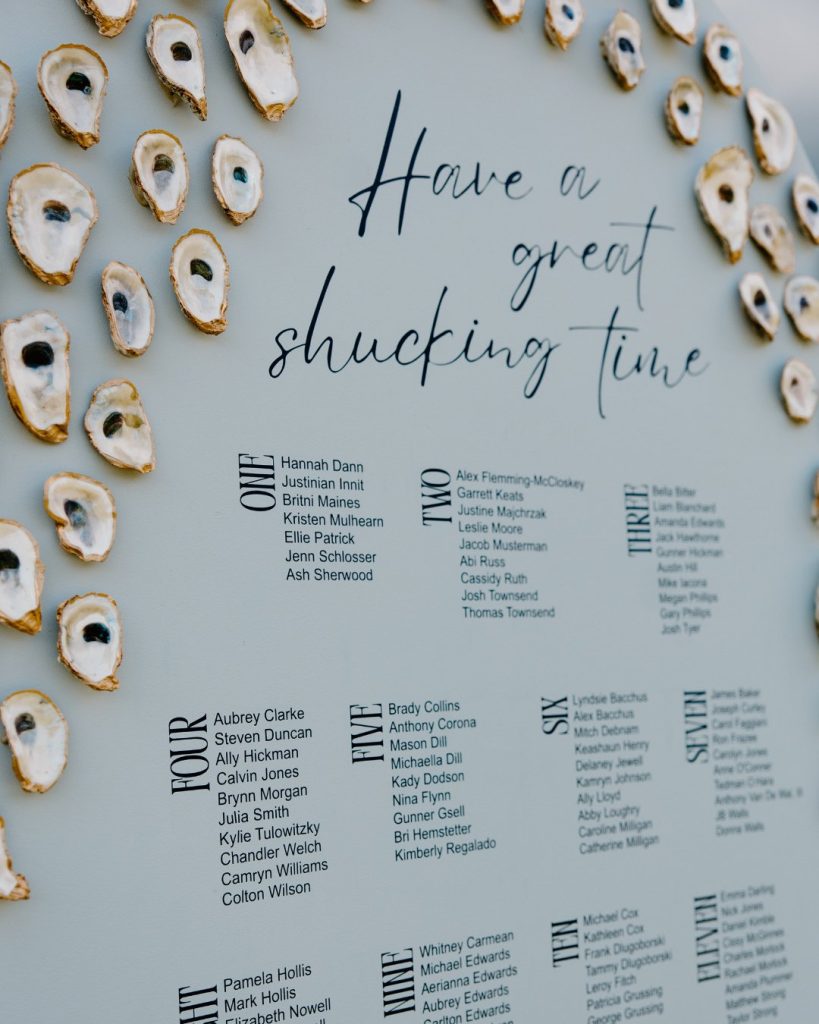 Have a
great
shucking time
ONE
Hannah Dann
Justinian Innit
Britni Maines
Kristen Mulhearn
Ellie Patrick
Jenn Schlosser
Ash Sherwood
TWO
Alex Flemming-McCloskey
Garrett Keats
Justine Majchrzak
Leslie Moore
Jacob Musterman
Abi Russ
Cassidy Ruth
Josh Townsend
Thomas Townsend
THREE
Bella Bitter
Liam Blanchard
Amanda Edwards
Jack Hawthorne
Gunner Hickman
Austin Hill
Mike Iacona
Megan Phillips
Gary Phillips
Josh Tyer
FOUR
Aubrey Clarke
Steven Duncan
Ally Hickman
Calvin Jones
Brynn Morgan
Julia Smith
Kylie Tulowitzky
Chandler Welch
Camryn Williams
Colton Wilson
FIVE
Brady Collins
Anthony Corona
Mason Dill
Michaella Dill
Kady Dodson
Nina Flynn
Gunner Gsell
Bri Hemstetter
Kimberly Regalado
SIX
Lyndsie Bacchus
Alex Bacchus
Mitch Debnam
Keashaun Henry
Delaney Jewell
Kamryn Johnson
Ally Lloyd
Abby Loughry
Caroline Milligan
Catherine Milligan
SEVEN
James Baker
Joseph Corley
Carol Faggiani
Ron Frazee
Carolyn Jones
Anne O'Conner
Tedman O'Hara
Anthony Van De Wal, II
JB Walls
Donna Walls
GHT
Pamela Hollis
Mark Hollis
Elizabeth Nowell
NINE
Whitney Carmean
Michael Edwards
Aerianna Edwards
Aubrey Edwards
Carlton Edwards
TEN
Michael Cox
Kathleen Cox
Frank Dlugoborski
Tammy Dlugoborski
Leroy Fitch
Patricia Grussing
George Grussing
ELEVEN
Emma Darling
Nick Jones
Daniel Kimble
Cissy McGinnes
Charles Morlock
Rachael Morlock
Amanda Plummer
Matthew Strong
Taylor Strong